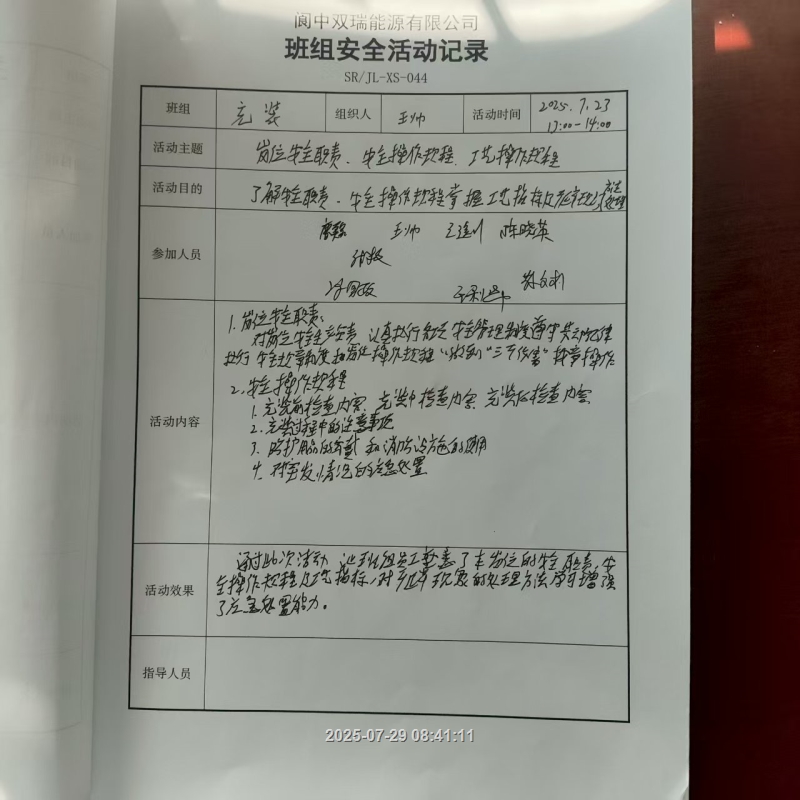 阆中双瑞能源有限公司
班组安全活动记录
SR/JL-XS-044
班组 充装 组织人 王帅 活动时间 2025.7.23
13:00-14:00
活动主题 岗位安全职责、安全操作规程、工艺操作规程
活动目的 了解安全职责、安全操作规程掌握工艺指标及
处理
参加人员
王帅 陈晓英
活动内容
1.岗位安全职责:
对岗位安全生产负责,认真执行 安全管理制度遵守劳动纪律
执行 安全规章制度和 操作规程 "做到"三不伤害" 操作
2.安全操作规程
1.充装前检查内容、充装中检查内容、充装后检查内容
2.充装过程中的注意事项
3.防护用品的穿戴和消防设施的使用
4.对突发情况的应急处置
活动效果
通过此次活动,让班组员工熟悉了本岗位的安全职责,安
全操作规程及工艺指标,对 现象的处理方法 增强
了应急处置能力。
指导人员
2025-07-29 08:41:11